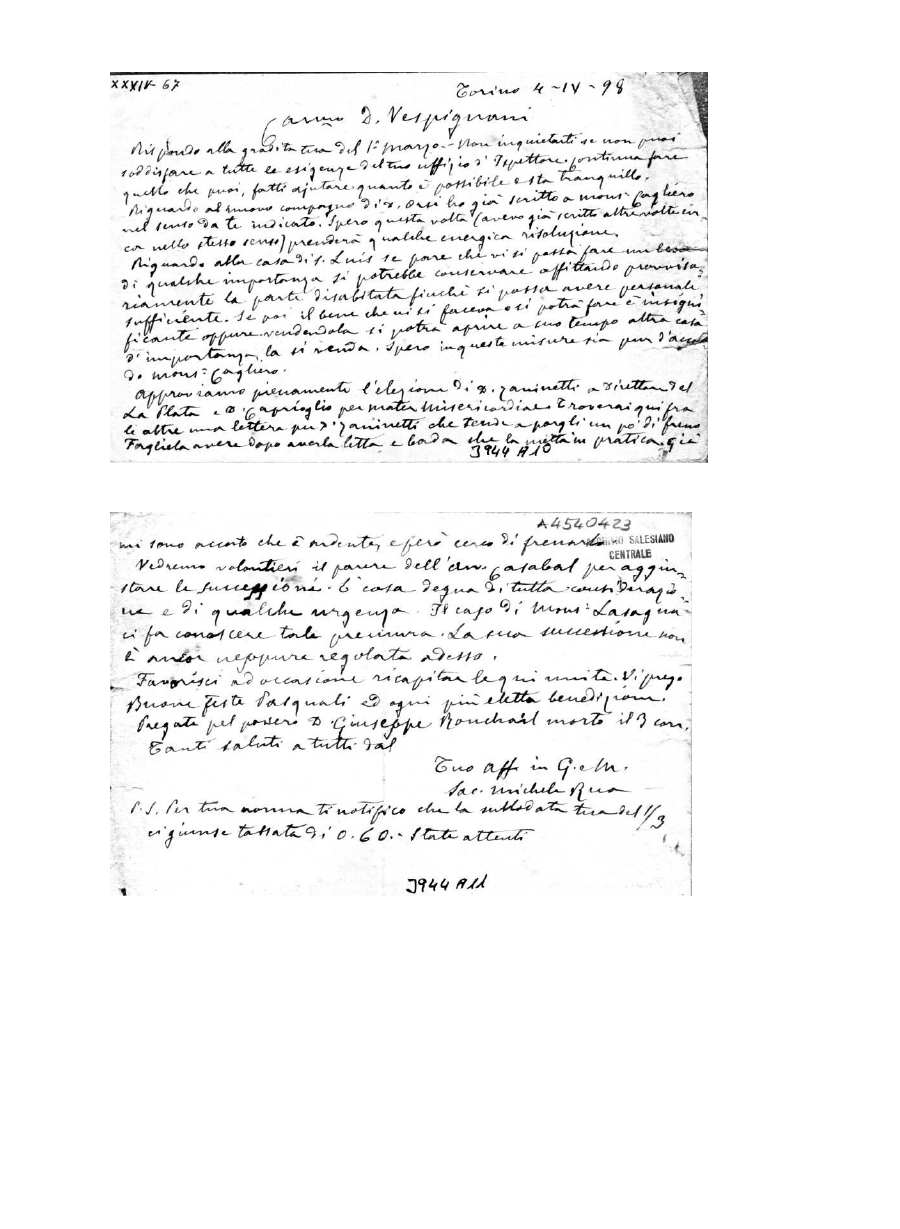 XXXIV-67
Torino 4-IV-98
Carmo D. Vespignani
Rispondo alla gradita tua del 1° Marzo. - Non inquietarti se non puoi
soddisfare a tutte le esigenze del tuo uffizio d'Ispettore. Continua fare
quello che puoi, fatti ajutare quanto è possibile e sta tranquillo.
Riguardo al nuovo compagno di D. Orsi ho già scritto a mons. Cagliero
nel senso da te indicato. Spero questa volta (avevo già scritto altre volte cir-
ca nello stesso senso) prenderà qualche energica risoluzione.
Riguardo alla casa di S. Luis se pare che vi si possa fare un bene
di qualche importanza si potrebbe conservare affittando provviso-
riamente la parte disabitata finchè si possa avere personale
sufficiente. Se poi il bene che vi si faceva o si potrà fare è insigni-
ficante oppure vendendola si potrà aprire a suo tempo altra casa
d'importanza, la si venda. Spero in queste misure sia pur d'accordo
do mons. Cagliero.
Approviamo pienamente l'elezione di D. Zaninetti a Direttore del
La Plata e D. Caprioglio per Mater Misericordiae. Troverai qui fra
le altre una lettera per D. Zaninetti che tende a porgli un po' di freno
Fagliela avere dopo averla letta e bada che la metta in pratica. Già
J944 A10
A4540423
SALESIANO
CENTRALE
mi sono accorto che è ardente, e però cerco di frenarlo
Vedremo volontieri il parere dell'Avv. Casabal per aggiu-
stare le successioni. È cosa degna di tutta considerazio-
ne e di qualche urgenza. Il caso di Mons. Lasagna
ci fa conoscere tale premura. La sua successione non
è ancor neppure regolata adesso.
Favorisci ad occasione ricapitar le qui unite. Vi prego
Buone feste Pasquali ed ogni più eletta benedizione.
Pregate pel povero D. Giuseppe Ronchail morto il 3 corr.
Tanti saluti a tutti dal
Tuo aff. in G. e M.
Sac. Michele Rua
P.S. Per tua norma ti notifico che la sullodata tua del 1/3
ci giunse tassata di 0.60.- State attenti
J944 A11